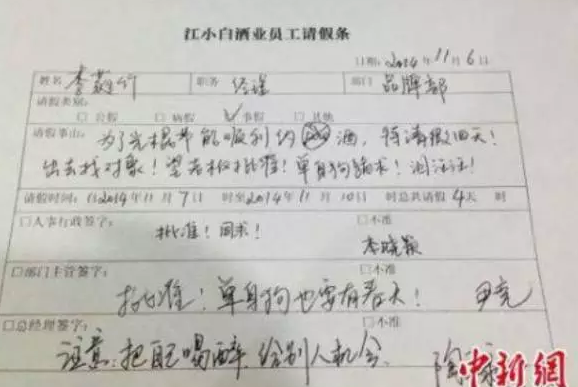 江小白酒业员工请假条
日期：2014年11月6日
姓名 李 竹 职务 经理 部门 品牌部
请假类别：
□公假 □病假 ☑事假 □其他
请假事由：为了光棍节能顺利约 酒，特请假四天！
出去找对象！望老板批准！单身狗跪求！泪汪汪！
请假时间：自2014年11月7日 时至2014年11月10日 时总共请假4天 时
□人事行政签字： □不准
批准！同求！ 李晓颖
□部门主管签字： □不准
批准！单身狗也要有春天！ 尹亮
□总经理签字： □不准
注意：把自己喝醉，给别人机会。 陶
中新網